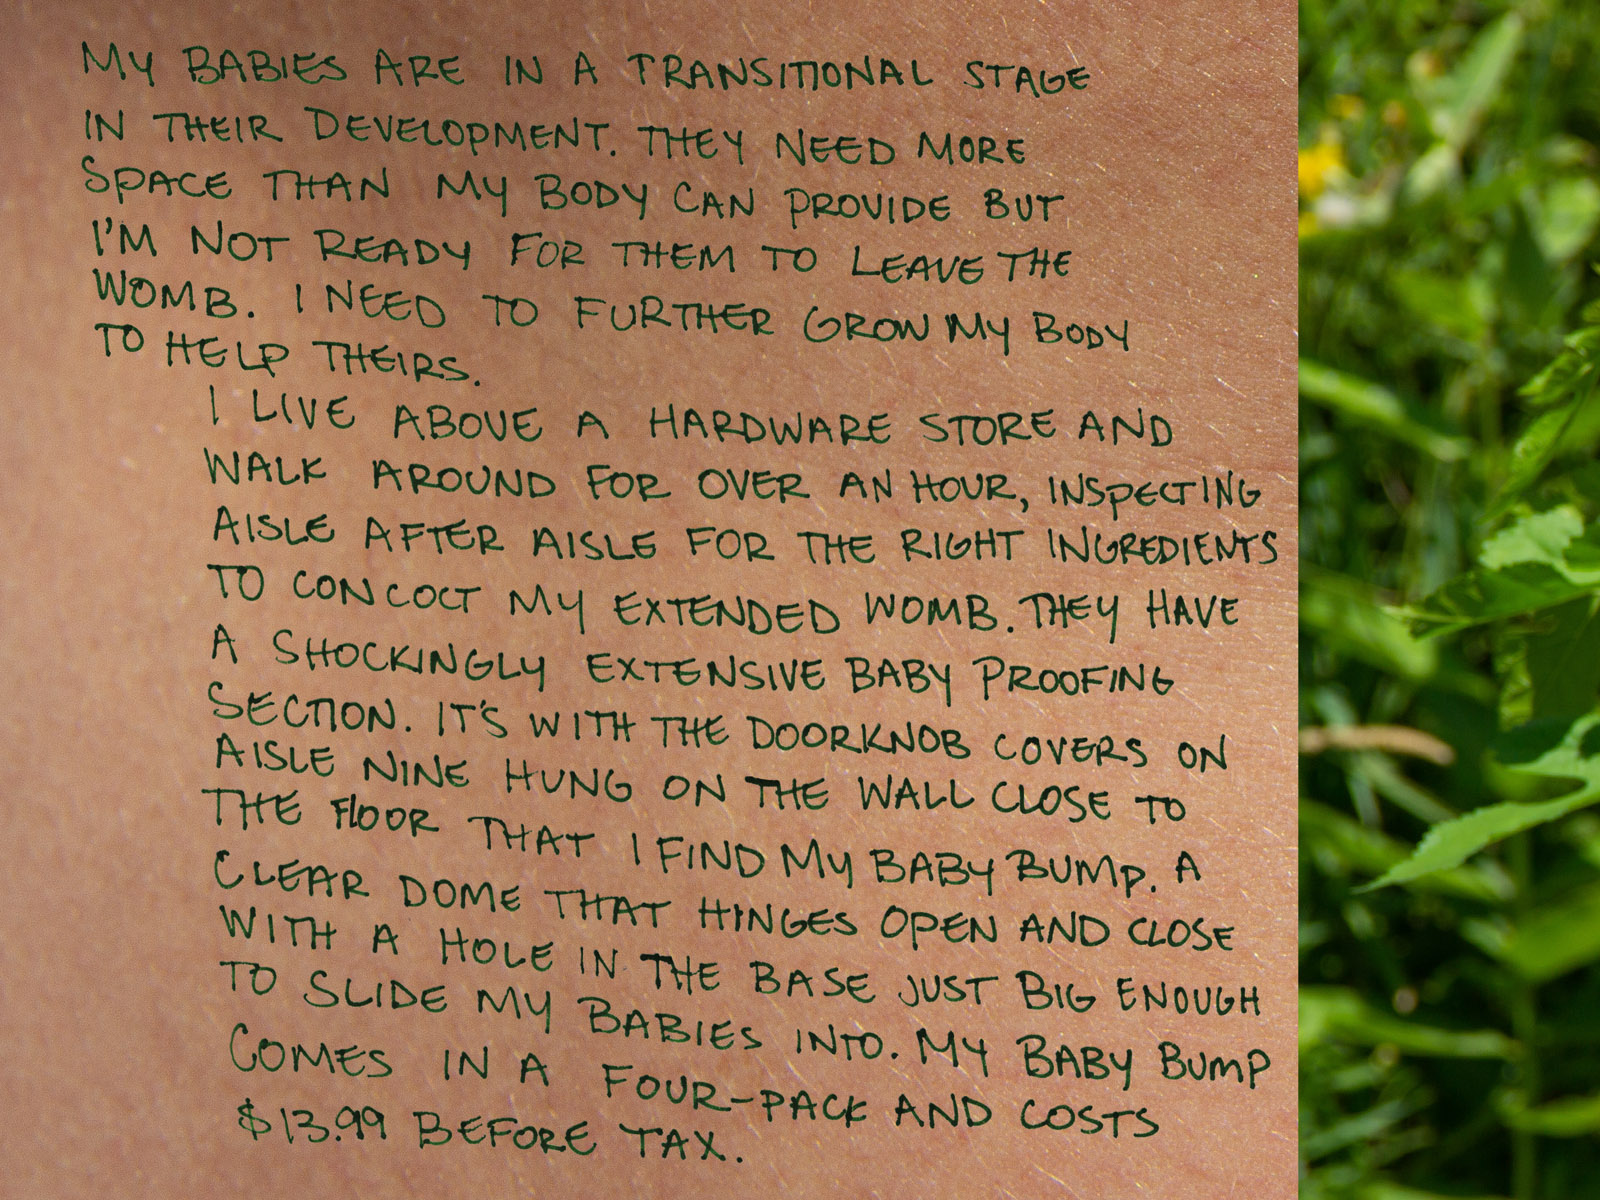 MY BABIES ARE IN A TRANSITIONAL STAGE
IN THEIR DEVELOPMENT. THEY NEED MORE
SPACE THAN MY BODY CAN PROVIDE BUT
I'M NOT READY FOR THEM TO LEAVE THE
WOMB. I NEED TO FURTHER GROW MY BODY
TO HELP THEIRS.
I LIVE ABOVE A HARDWARE STORE AND
WALK AROUND FOR OVER AN HOUR, INSPECTING
AISLE AFTER AISLE FOR THE RIGHT INGREDIENTS
TO CONCOCT MY EXTENDED WOMB. THEY HAVE
A SHOCKINGLY EXTENSIVE BABY PROOFING
SECTION. IT'S WITH THE DOORKNOB COVERS ON
AISLE NINE HUNG ON THE WALL CLOSE TO
THE FLOOR THAT I FIND MY BABY BUMP. A
CLEAR DOME THAT HINGES OPEN AND CLOSE
WITH A HOLE IN THE BASE JUST BIG ENOUGH
TO SLIDE MY BABIES INTO. MY BABY BUMP
COMES IN A FOUR-PACK AND COSTS
$13.99 BEFORE TAX.